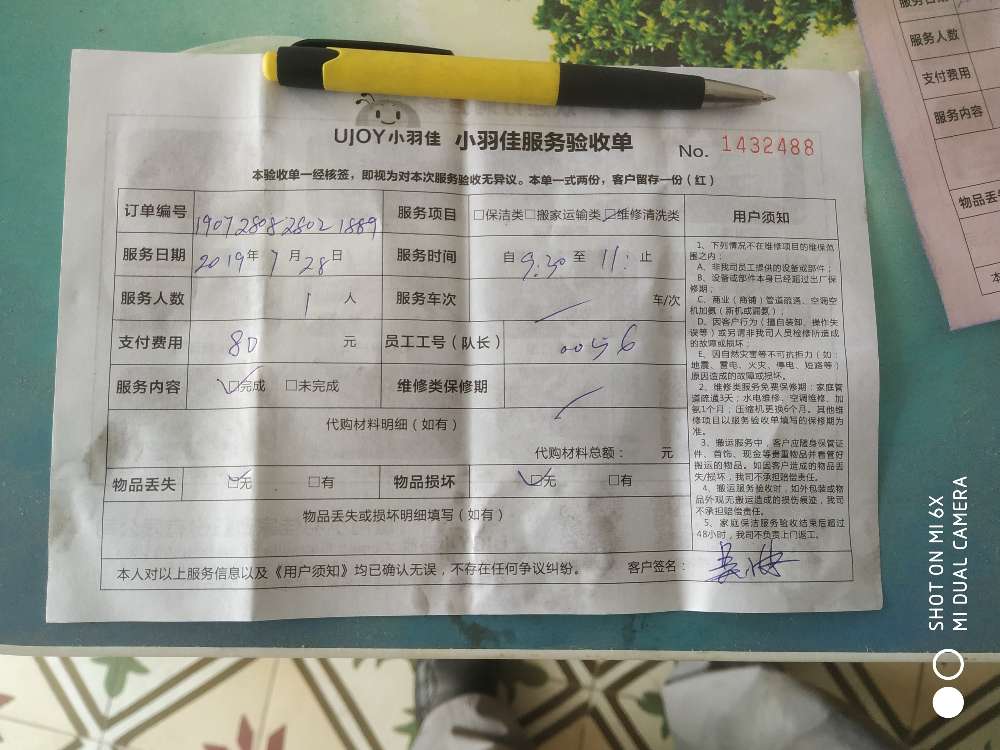 UJOY小羽佳 小羽佳服务验收单 No. 1432488
本验收单一经核签，即视为对本次服务验收无异议。本单一式两份，客户留存一份（红）
订单编号 1907280828021889 服务项目 □保洁类□搬家运输类☑维修清洗类
服务日期 2019年7月28日 服务时间 自9:30至11:止
服务人数 1人 服务车次 / 车/次
支付费用 80 元 员工工号（队长） 0056
服务内容 ☑完成 □未完成 维修类保修期 /
代购材料明细（如有）
代购材料总额： 元
物品丢失 ☑无 □有 物品损坏 ☑无 □有
物品丢失或损坏明细填写（如有）
本人对以上服务信息以及《用户须知》均已确认无误，不存在任何争议纠纷。 客户签名：
用户须知
1、下列情况不在维修项目的维保范
围之内：
A、非我司员工提供的设备或部件；
B、设备或部件本身已经超过出厂保
修期；
C、商业（商铺）管道疏通、空调空
机加氨（新机或漏氨）；
D、因客户行为（擅自装卸、操作失
误等）或另请非我司人员检修所造成
的故障或损坏；
E、因自然灾害等不可抗拒力（如：
地震、雷电、火灾、停电、短路等）
原因造成的故障或损坏。
2、维修类服务免费保修期：家庭管
道疏通3天；水电维修、空调维修、加
氨1个月；压缩机更换6个月。其他维
修项目以服务验收单填写的保修期为
准。
3、搬运服务中，客户应随身保管证
件、首饰、现金等贵重物品并看管好
搬运的物品。如因客户造成的物品丢
失/损坏，我司不承担赔偿责任。
4、搬运服务验收时，如外包装或物
品外观无搬运造成的损伤痕迹，我司
不承担赔偿责任。
5、家庭保洁服务验收结束后超过
48小时，我司不负责上门返工。
服务日期
服务人数
支付费用
服务内容
物品丢
SHOT ON MI 6X
MI DUAL CAMERA